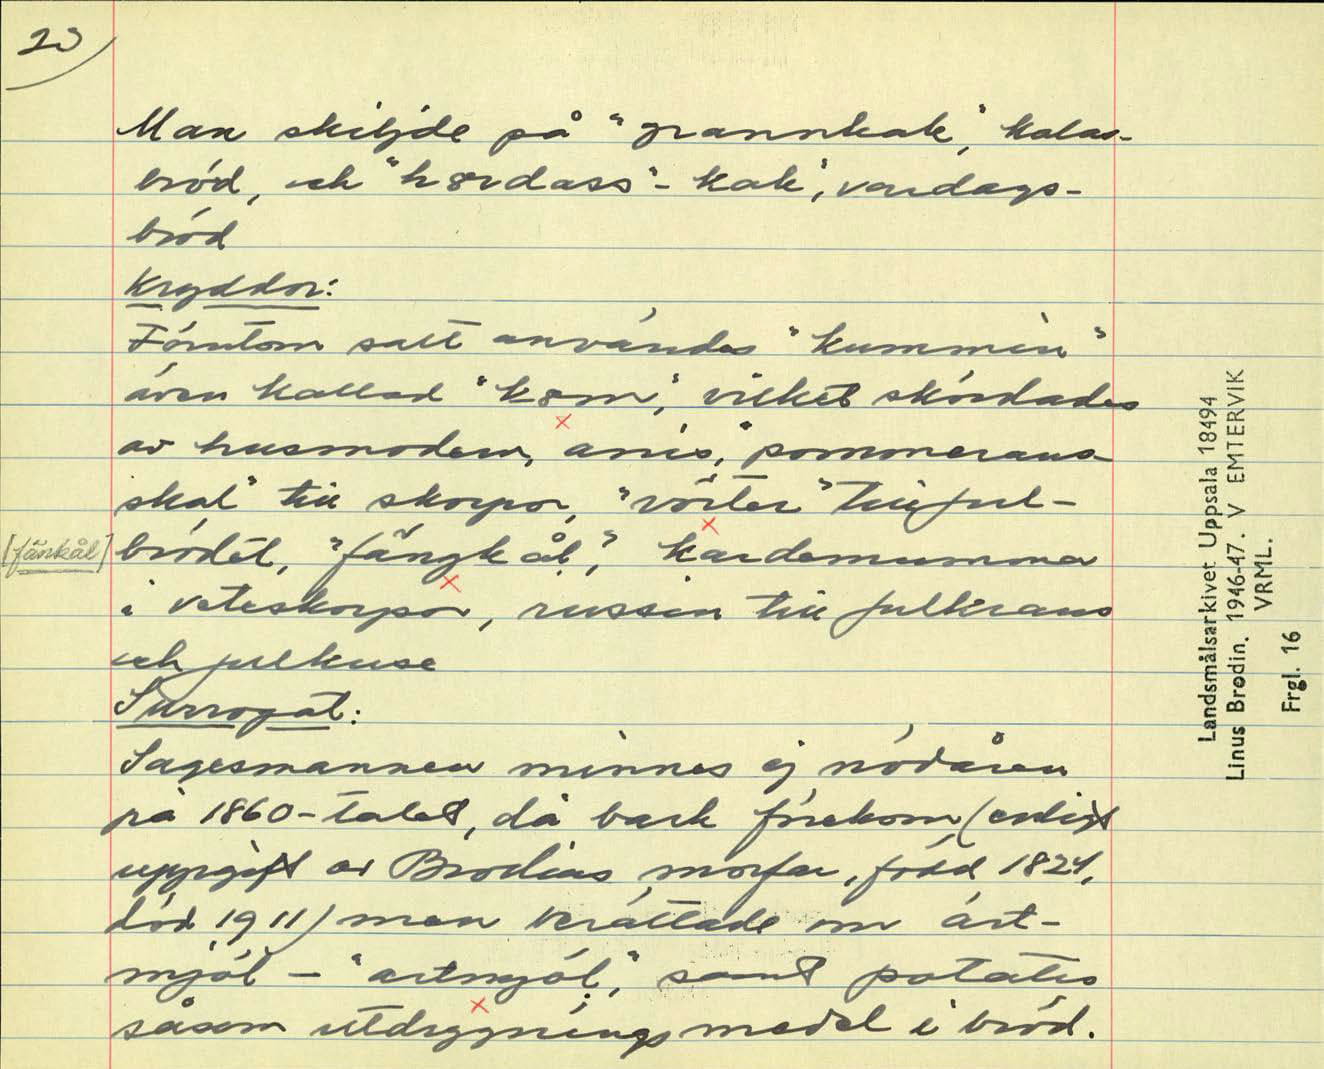 23
Man skiljde på "grannkak", kalas-
bröd, och "h8rdass"-kak", vardags-
bröd
Kryddor:
Förutom salt användes "kummin"
även kallad "k8m", vilket skördades
av husmodern, anis, "pommerans-
skal" till skorpor, "vörter" till jul-
brödet, "fängkål", kardemumma
[fänkål]
i veteskorpor, russin till julkrans
och julkuse
Surrogat:
Sagesmannen minnes ej nödåren
på 1860-talet, då bark förekom, (enligt
uppgift av Brodins morfar, född 1824,
död 1911) men berättade om ärt-
mjöl – "artmjöl", samt potatis
såsom utdrygningsmedel i bröd.
Landsmålsarkivet Uppsala 18494
Linus Brodin. 1946-47. V EMTERVIK
VRML.
Frgl. 16